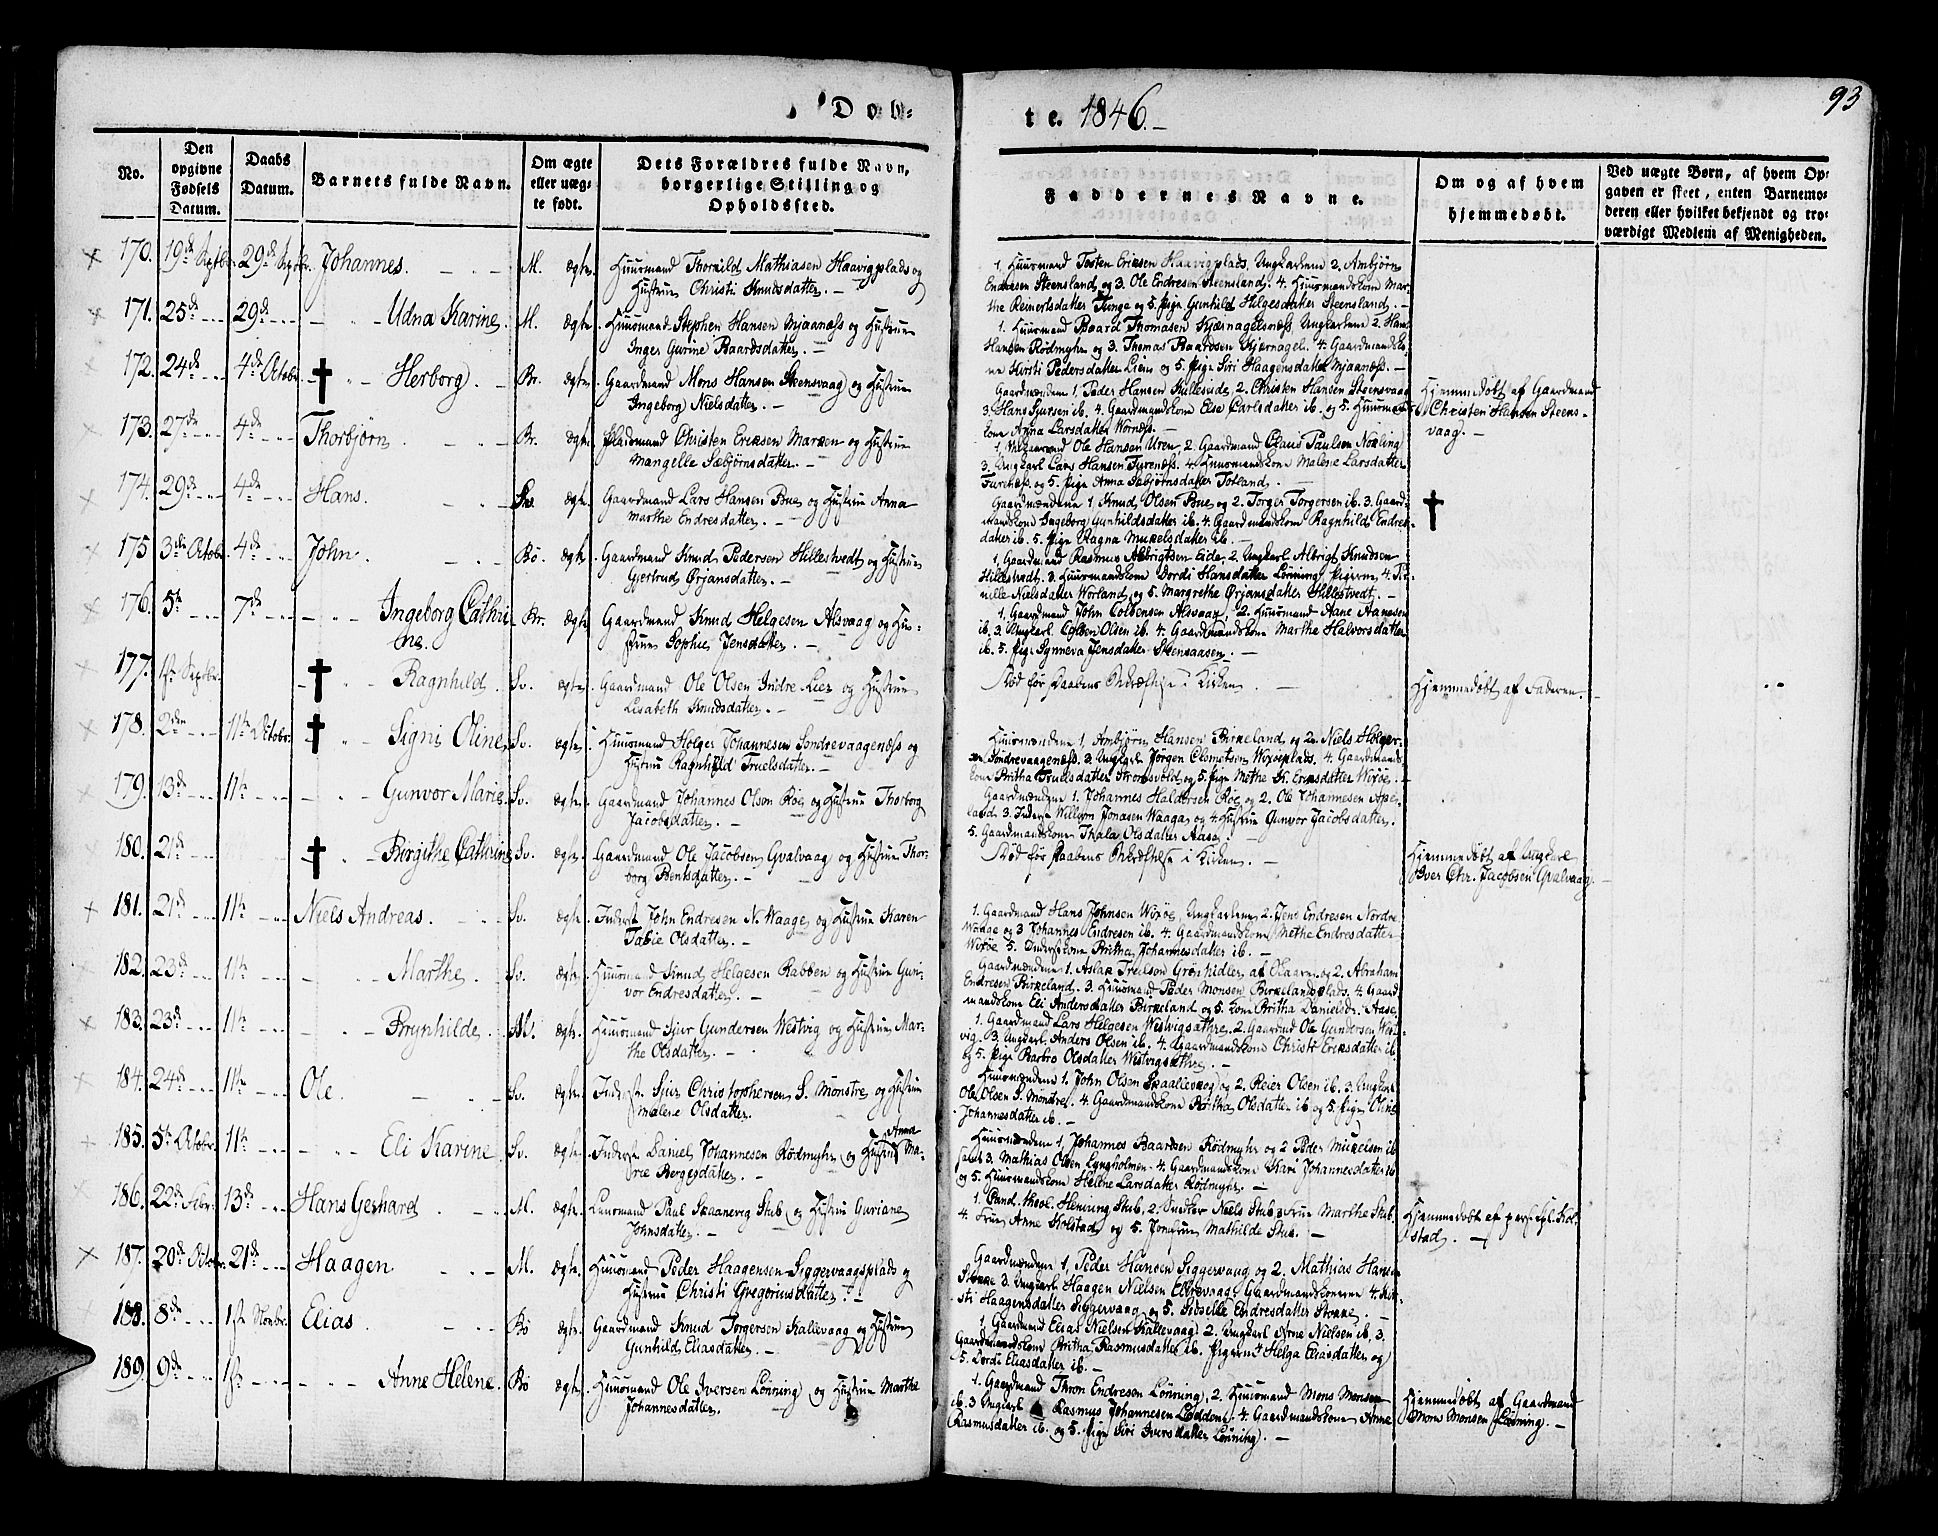 Døb-
te. 1846.
93
No.
Den opgivne Fødsels Datum.
Daabs Datum.
Barnets fulde Navn.
Om ægte eller uægte født.
Dets Forældres fulde Navn, borgerlige Stilling og Opholdssted.
Faddernes Navne.
Om og af hvem hjemmedøbt.
Ved uægte Børn, af hvem Opgaven er skeet, enten Barnemoderen eller hvilket bekjendt og troværdigt Medlem af Menigheden.
170. 19de Septbr. 29de Septbr. Johannes. M. ægte. Huusmand Thorkild Mathiasen Haavigplads og
Hustrue Christi Knudsdatter.
1, Huusmand Tosten Eriksen Haavigplads. Ungkarlene 2. Ambjørn
Endresen Steensland, og 3. Ole Endresen Steensland. 4. Huusmandskone Mar-
the Reinertsdatter Tunge og 5. Pige Gunhild Helgesdatter Steensland.
171. 25de 29de Udna Karine. M. ægte. Huusmand Stephen Hansen Mjaanæss og Hustrue
Inger Gurine Baardsdatter.
1. Huusmand Baard Thomasen Kjærnagelsnæss, Ungkarlene 2. Hans
Hansen Rødmyhr og 3. Thomas Baardsen Kjernagel. 4. Gaardmandsko-
ne Kirsti Pedersdatter Liens og 5. Pige Siri Haagensdatter Mjaanæss.
172. 24de 4de Octobr. Herborg. Br. ægte. Gaardmand Mons Hansen Steensvaag og Hustrue
Ingeborg Nielsdatter.
Gaardmændene 1, Peder Hansen Hillesvide, 2. Christen Hansen Steensvaag
3. Hans Sjursen ib. 4. Gaardmandskone Else Carlsdatter ib. og 5. Huusmands-
kone Anna Larsdatter Wornæss.
Hjemmedøbt af Gaardmand
Christen Hansen Steens-
vaag.
173. 27de 4de Thorbjørn. Br. ægte. Pladsmand Christen Eriksen Marken og Hustrue
Mangelle Sæbjørnsdatter.
1, Ungkarl Ole Hansen Uren, 2. Gaardmand Claus Paulsen
3. Ungkarl Lars Hansen Turenæss. 4. Huusmandskone Malene Larsdatter
og 5. Pige Anna Sæbjørnsdatter Totland.
174. 29de 4de Hans. Sv. ægte. Gaardmand Lars Hansen Bue og Hustrue Anna
Marthe Endresdatter.
Gaardmændene 1, Knud Olsen Bue og 2. Torger Torgersen ib. 3. Gaard-
mandskone Ingeborg Gunhildsdatter ib. 4. Gaardmandskone Ragnhild Endres-
datter ib. 5. Pige Ragna Mikelsdatter ib.
175 3die Octobr. 4de John. Bø. ægte. Gaardmand Knud Pedersen Hillestvedt og Hustrue
Gjertrud Ørjansdatter.
1, Gaardmand Rasmus Albrigtsen Eide, 2. Ungkarl Albrigt Knudsen
Hillestvedt. 3. Huusmandskone Dordi Hansdatter Lønning. Pigerne, 4. Pe-
nille Nielsdatter Worland, og 5. Margrethe Ørjansdatter Hillestvedt.
176. 5te 7de Ingeborg Cathri-
ne. Br. ægte. Gaardmand Knud Helgesen Alsvaag og Hus-
true Sophie Jensdatter.
1. Gaardmand John Colbensen Alsvaag, 2. Huusmand Aane Aanesen
ib. 3. Ungkarl Colben Olsen ib. 4. Gaardmandskone Martha Halvorsdatter
ib. 5. Pige Synneva Jensdatter Steensaasen.
177. 1ste Septbr. Ragnhild. Sv. ægte. Gaardmand Ole Olsen Indre Lier og Hustrue
Lisabeth Knudsdatter.
Død før Daabens Bekræftelse i Kirken.
Hjemmedøbt af Faderen.
178. 2den 11te Octobr. Signi Oline. Sv. ægte. Huusmand Holger Johannesen Søndrevaagenæss og
Hustrue Ragnhild Truelsdatter.
Huusmændene 1, Ambjørn Hansen Birkeland og 2. Niels Holger-
sen Søndrevaagenæss. 3. Ungkarl Jørgen Clemetsen Wixøeplads. 4. Gaardmands-
kone Britha Truelsdatter Stromsvold og 5. Pige Methe K. Eriksdatter Wixøe.
179. 13de 11te Gunvor Marie. Sv. ægte. Gaardmand Johannes Olsen Røe og Hustrue Thorborg
Jacobsdatter.
Gaardmændene 1. Johannes Haldorsen Røe og 2. Ole Johannesen Ape-
land 3. Inderst Willum Jonasen Waaga og 4. Hustrue Gunvor Jacobsdatter.
5. Gaardmandskone Thala Olsdatter Aase.
180. 21de Bergithe Cathrine Sv. ægte. Gaardmand Ole Jacobsen Gvalvaag og Hustrue Thor-
borg Bentsdatter.
Død før Daabens Bekræftelse i Kirken.
Hjemmedøbt af Ungkarl
Iver Chr. Jacobsen Gvalvaag.
181. 21de 11te Niels Andreas. Sv. ægte. Inderst John Endresen N. Waage og Hustrue Karen
Tabie Olsdatter.
1. Gaardmand Hans Johnsen Wixøe, Ungkarlene 2. Jens Endresen Nordre
Waage og 3 Johannes Endresen ib. 4. Gaardmandskone Methe Endresdatter
Wixøe 5. Inderstkone Britha Johannesdatter ib.
182. 23de 11te Marthe. Sv. ægte. Huusmand Knud Helgesen Rabben og Hustrue Guri-
vor Endresdatter.
Gaardmændene 1. Aslak Truelsen og 2. Abraham
Endresen Birkeland. 3. Huusmand Peder Monsen Birkelandsplads. 4. Gaard-
mandskone Eli Andersdatter Birkeland og 5. Kone Britha Danielsdr. Aase.
183. 23de 11te Brynhilde. M. ægte. Huusmand Sjur Gundersen Westvig og Hustrue Mar-
the Olsdatter.
1. Gaardmand Lars Helgesen Westvigsæthre. 2. Gaardmd Ole Gundersen West-
vig. 3. Ungkarl Anders Olsen ib. 4. Gaardmandskone Christi Eriksdatter ib
og 5. Pige Barbro Olsdatter Westvigsæthre.
184. 24de 11te Ole. Sv. ægte. Inderst Sjur Christophersen S. Monstre og Hustrue
Malene Olsdatter.
Huusmændene 1. John Olsen Skaallevaag og 2. Reier Olsen ib. 3. Ungkarl
Ole Olsen S. Monstre. 4. Gaardmandskone Britha Olsdatter ib og 5. Pige Oline
Johannesdatter ib.
185. 5te Octobr. 11te Eli Karine. Sv. ægte. Inderst Daniel Johannesen Rødmyhr og Hustrue Anna Ma-
rie Bergesdatter.
Huusmændene 1. Johannes Baardsen Rødmyhr og 2 Peder Mikkelsen ib
samt 3. Mathias Olsen Lyngholmen. 4. Gaardmandskone Kari Johannesdatter ib
og 5. Huusmandskone Helene Larsdatter Rødmyhr.
186. 22de Febr. 13de Hans Gerhard. M. ægte. Lunsmand Paul Skaanevig Stub og Hustrue Guriane
Johnsdatter.
1. Cand. theol. Henning Stub, 2. Snedker Niels Stub 3. Frue Marthe Stub.
4. Frue Anne Kolstad og 5. Jomfrue Mathilde Stub.
Hjemmedøbt af pers. Cpl. Kol-
stad.
187. 20de Octobr. 21de Haagen M. ægte. Huusmand Peder Haagensen Siggervaagsplads og
Hustrue Christi Gregoriusdatter.
Gaardmændene 1, Peder Hansen Siggervaag og 2. Mathias Hansen
Stokke 3. Ungkarl Haagen Nielsen Ekrevaag, Gaardmandskonerne 4. Kir-
sti Haagensdatter Siggervaag og 5. Sidselle Endresdatter Stokke.
188. 8de 1ste Novbr. Elias. Bø ægte. Gaardmand Knud Torgersen Kallevaag og Hustrue
Gunhild Eliasdatter.
1. Gaardmand Elias Nielsen Kallevaag, 2. Ungkarl Arne Nielsen ib. 3.
Gaardmandskone Britha Rasmusdatter ib. Pigerne 4 Helga Eliasdatter og
5. Dordi Eliasdatter ib.
189. 9de 1ste Anne Helene. Bø ægte. Huusmand Ole Iversen Lønning, og Hustrue Marthe
Johannesdatter.
1. Gaardmand Thron Endresen Lønning, 2. Huusmand Mons Monsen
ib. 3 Ungkarl Rasmus Johannesen Løddene, 4. Gaardmandskone Anne
Rasmusdatter ib. og 5. Pige Siri Iversdatter Lønning.
Hjemmedøbt af Gaardmand
Mons Monsen Lønning.